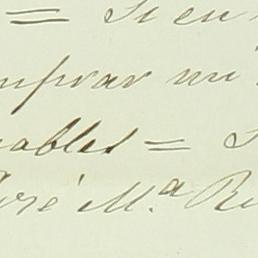 = Si en
mprar mi
ables = S
José M.ª R